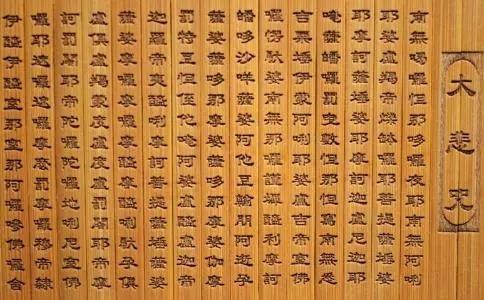 大悲咒
南無喝囉怛那哆囉夜耶南無阿唎
耶婆盧羯帝爍缽囉耶菩提薩埵婆
耶摩訶薩埵婆耶摩訶迦盧尼迦耶
唵薩皤囉罰曳數怛那怛寫南無悉
吉栗埵伊蒙阿唎耶婆盧吉帝室佛
囉楞馱婆南無那囉謹墀醯利摩訶
皤哆沙咩薩婆阿他豆輸朋阿逝孕
薩婆薩哆那摩婆薩哆那摩婆伽摩
罰特豆怛姪他唵阿婆盧醯盧迦帝
迦羅帝夷醯唎摩訶菩提薩埵薩婆
薩婆摩囉摩囉摩醯摩醯唎馱孕俱
盧俱盧羯蒙度盧度盧罰闍耶帝摩
訶罰闍耶帝陀囉陀囉地唎尼室佛
囉耶遮囉遮囉麼麼罰摩囉穆帝隸
伊醯伊醯室那室那阿囉嘇佛囉舍